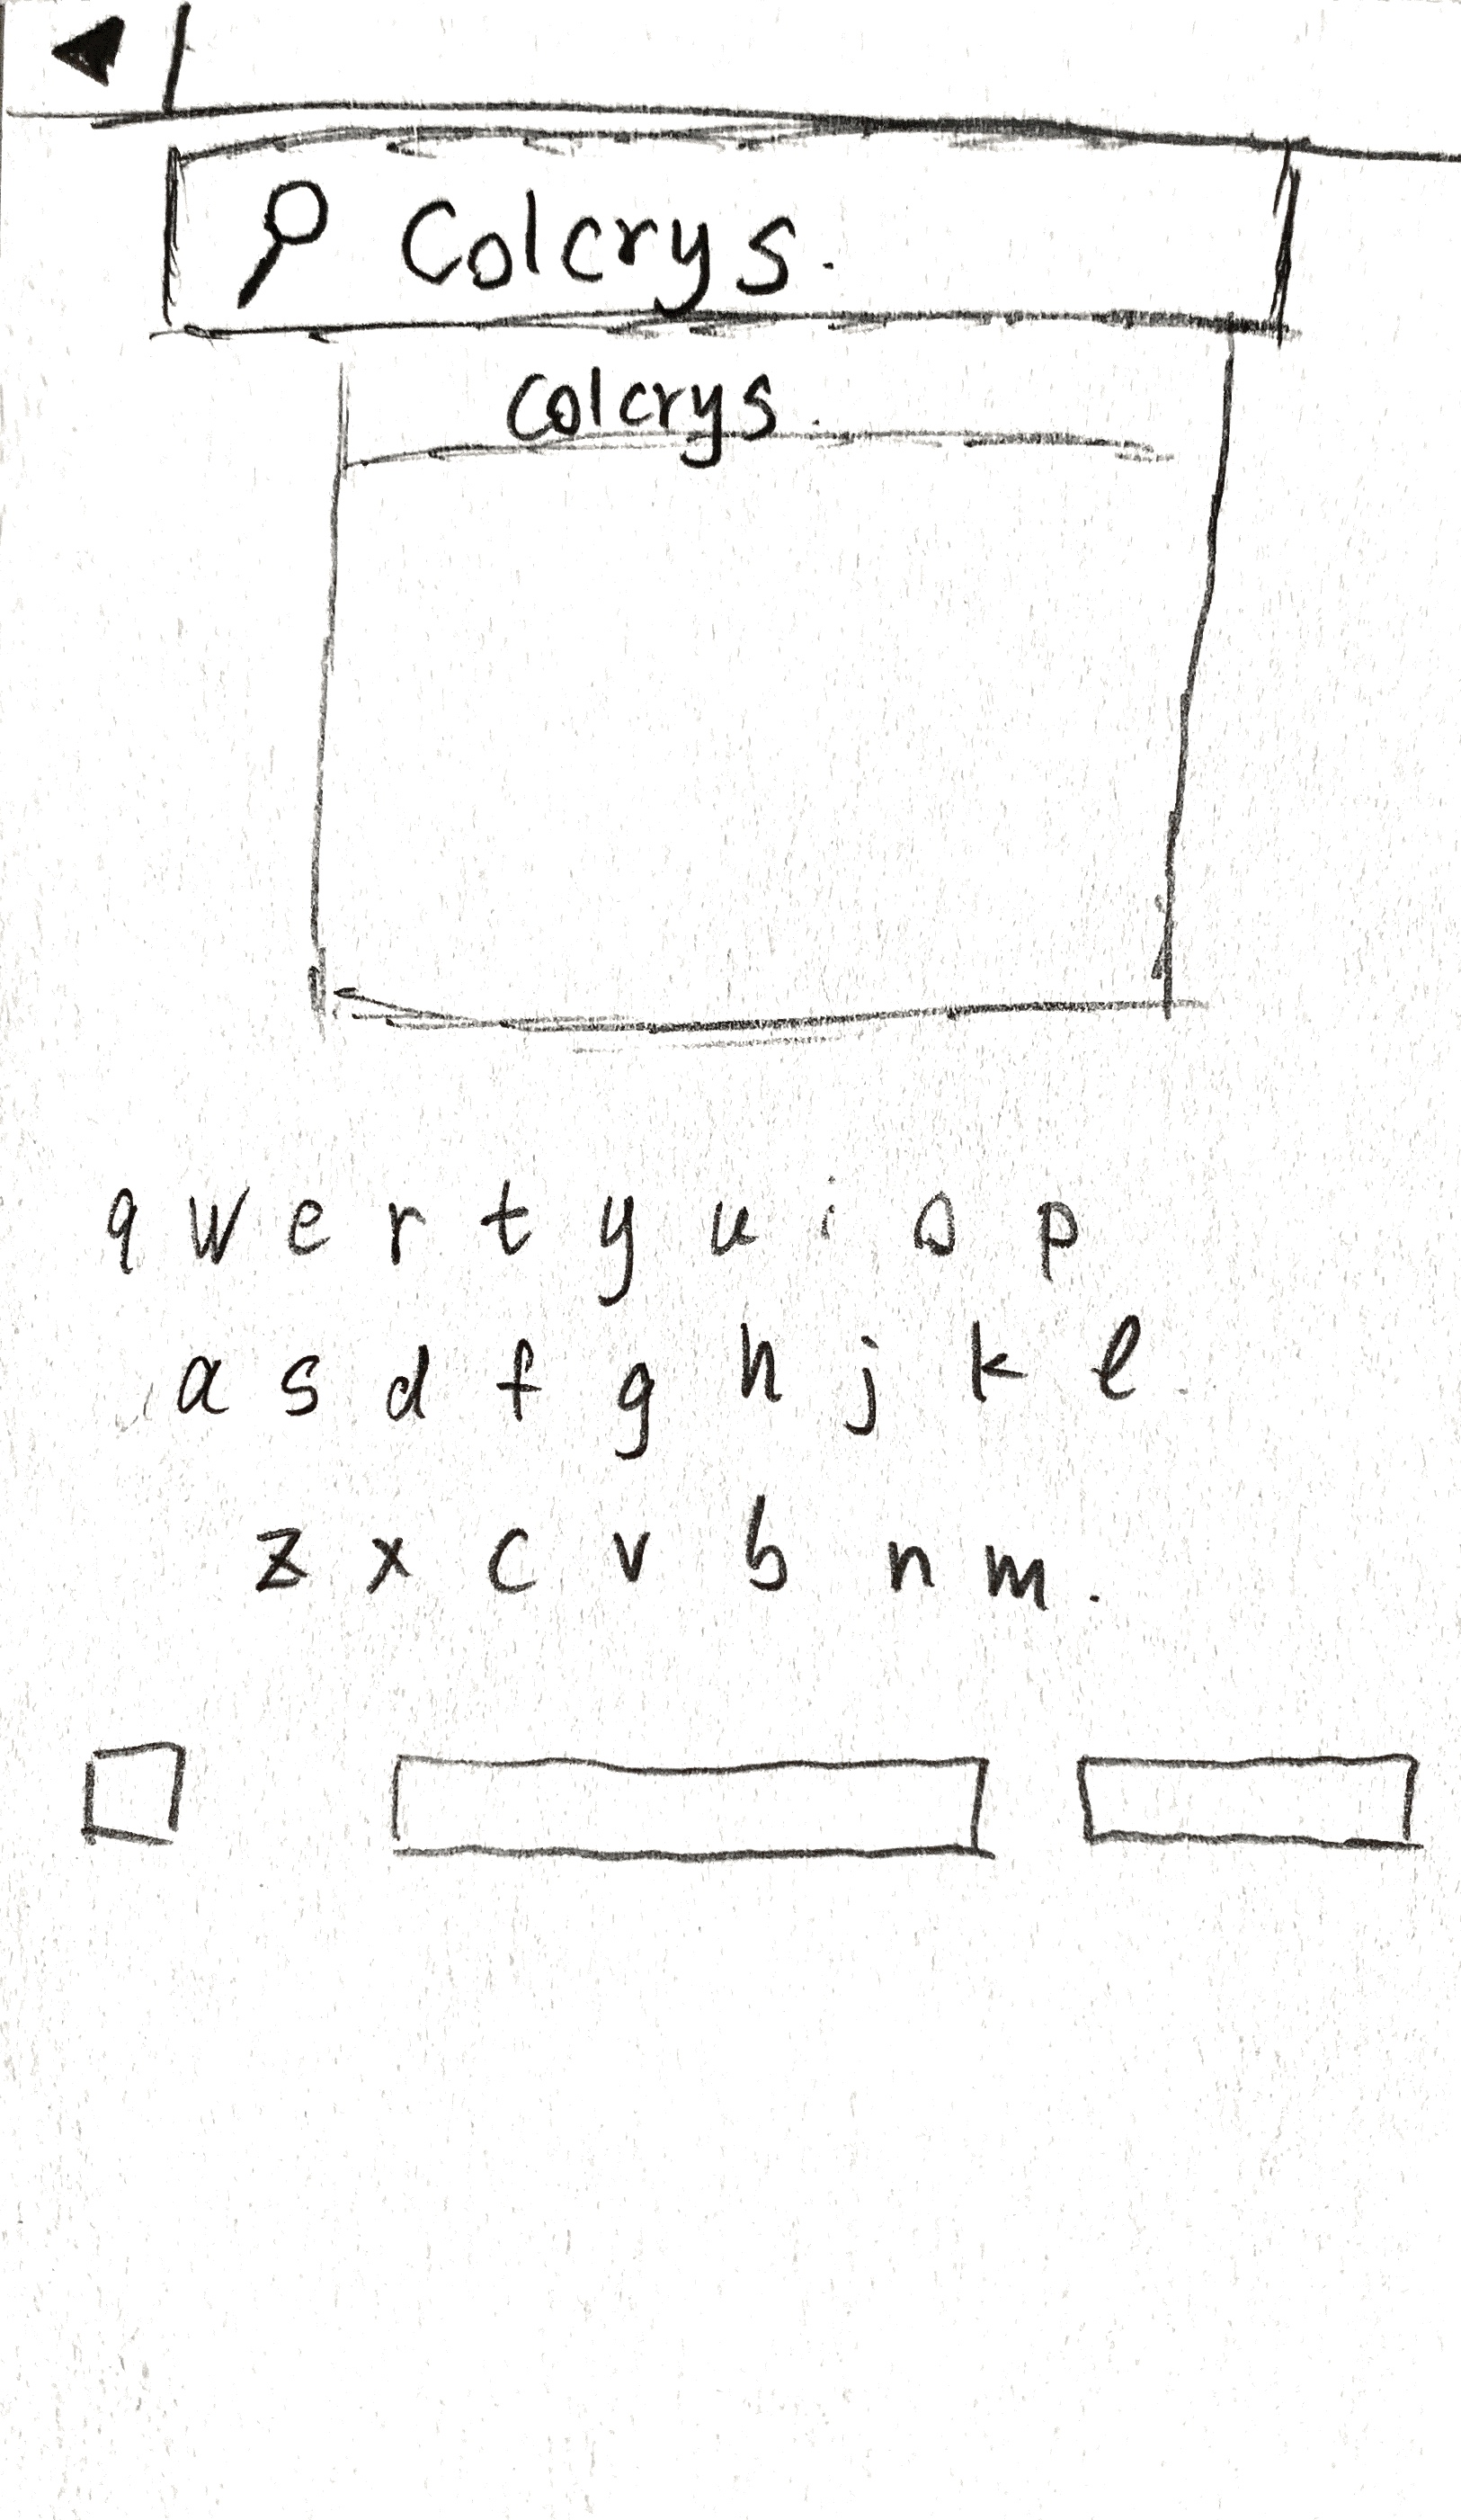 Colcrys.
Colcrys.
q w e r t y u i o p
a s d f g h j k l
z x c v b n m.